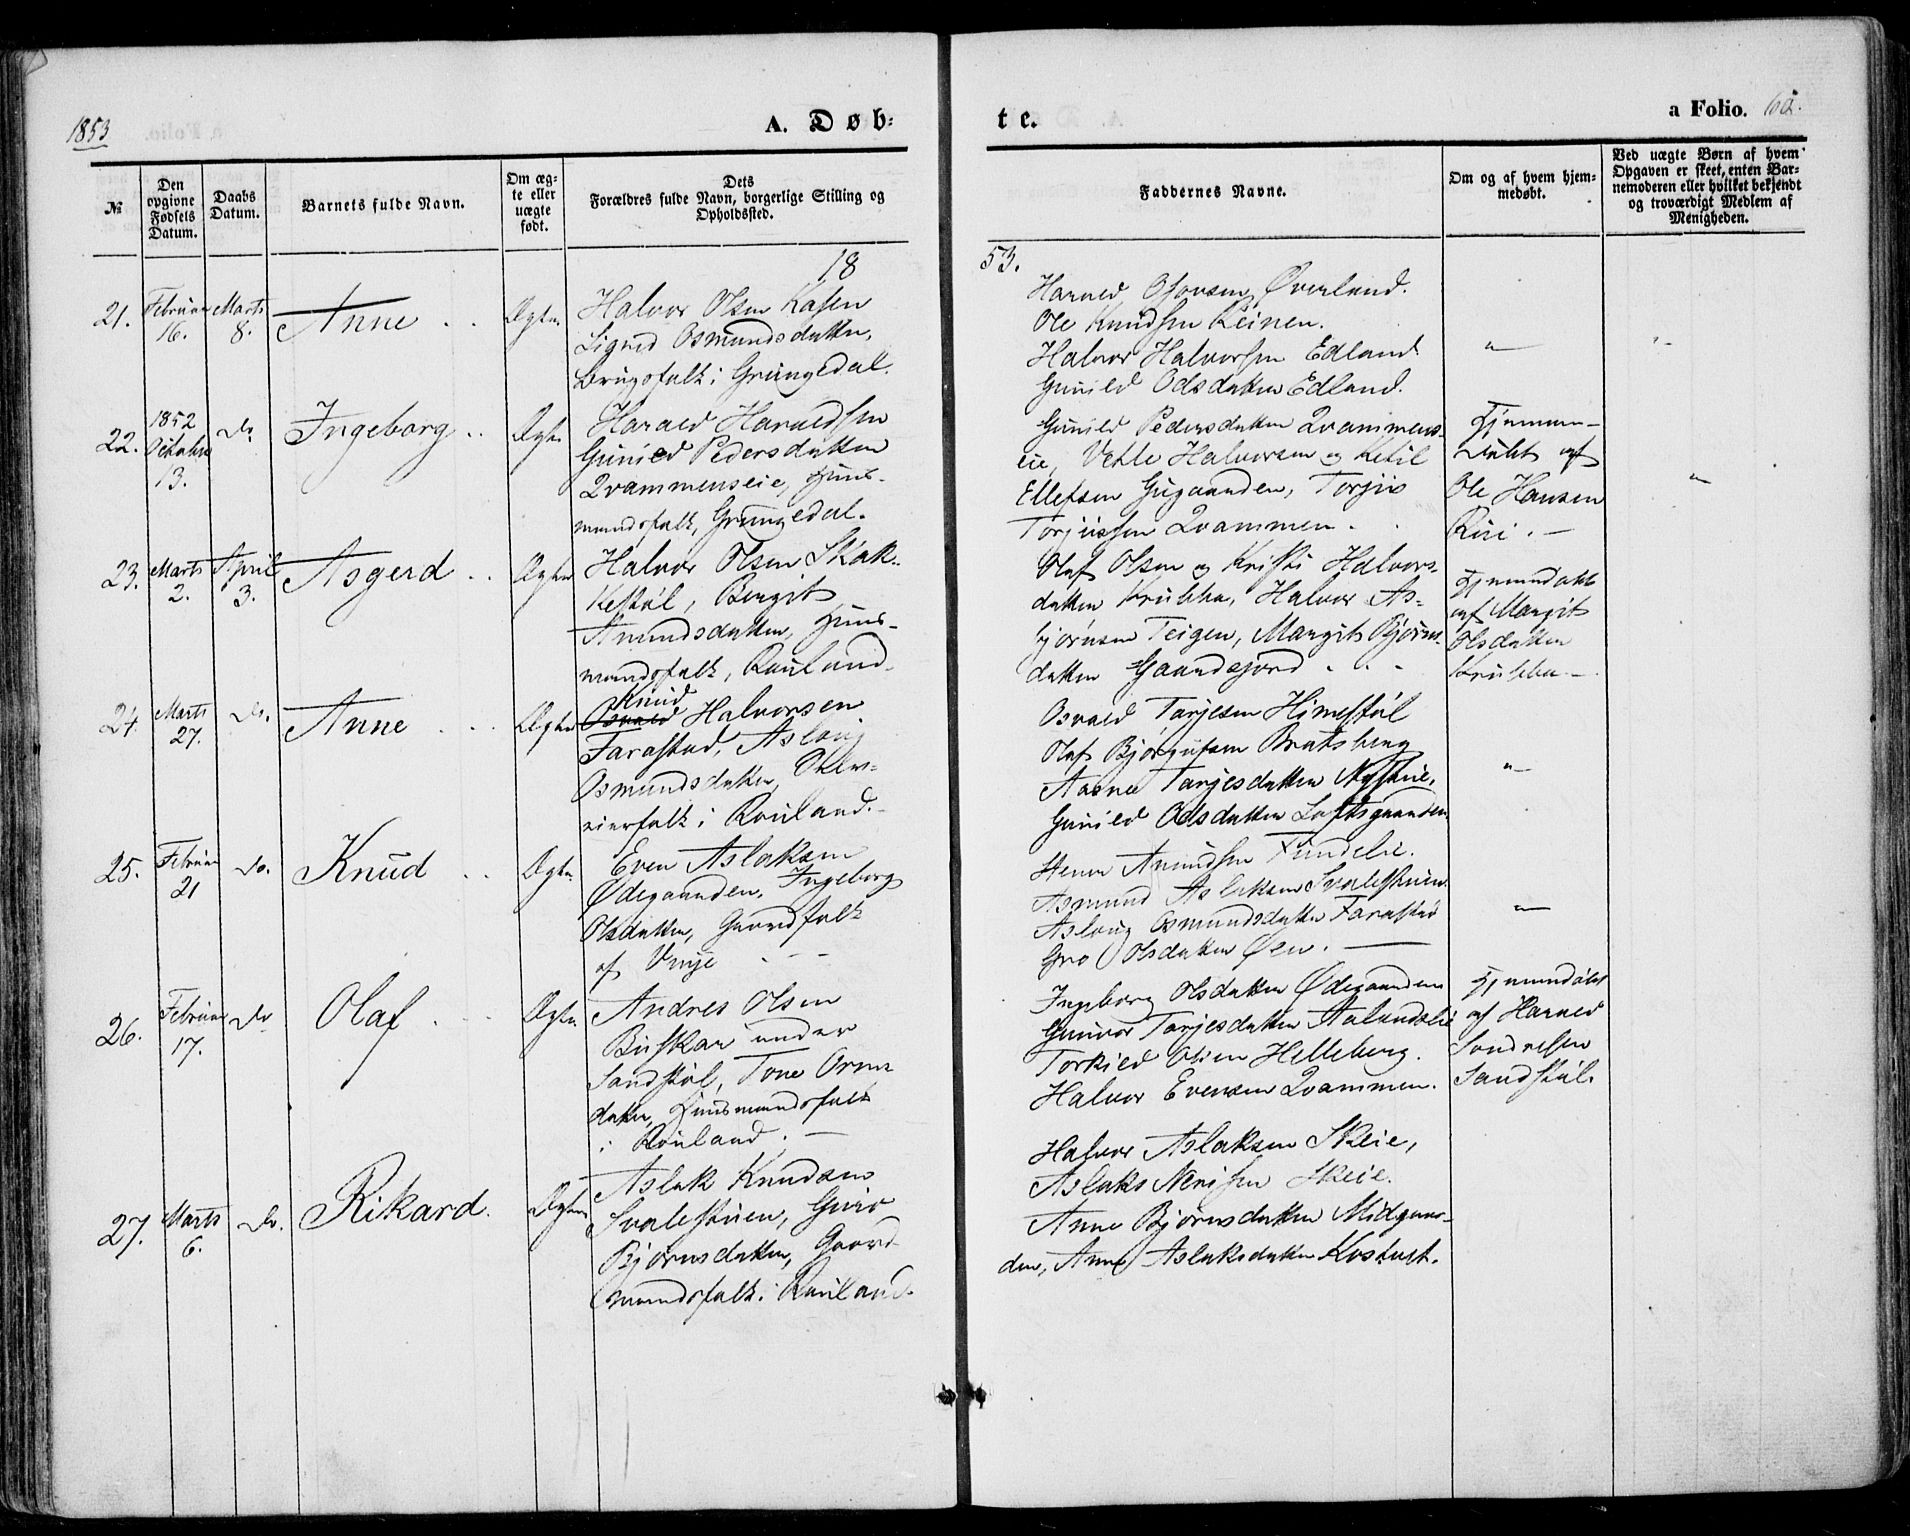 1853
A. Døb-
te.
a Folio. 62.
№
Den opgivne Fødsels Datum.
Daabs Datum.
Barnets fulde Navn.
Om ægte eller uægte født.
Dets Forældres fulde Navn, borgerlige Stilling og Opholdssted.
Faddernes Navne.
Om og af hvem hjemmedøbt.
Ved uægte Børn af hvem Opgaven er skeet, enten Barnemoderen eller hvilket bekjendt og troværdigt Medlem af Menigheden.
18
53.
21.
Februar 16.
Marts 8.
Anne
Ægte
Halvor Olsen Kasen
Sigrid Osmundsdatter,
Brugsfolk i Grungedal.
Harald Olavsen Øverland.
Ole Knudsen Reinen.
Halvor Halvorsen Edland
Gunild Odsdatter Edland.
22.
1852 Oktober 13.
Do
Ingeborg
Ægte
Harald Haraldsen
Gunild Pedersdatter
Qvammenseie, Huus-
mandsfolk, Grungedal.
Gunild Pedersdatter Qvammens-
eie, Vetle Halvorsen og Ketil
Ellefsen Gugaarden, Torjus
Torjussen Qvammen.
Hjemme-
døbt af
Ole Hansen
Rui.
23.
Marts 2.
April 3.
Asgerd
Ægte
Halvor Olsen Skak-
kestøl, Bergit
Amundsdatter, Huus-
mandsfolk, Rauland.
Olaf Olsen og Kristi Halvors-
datter Krubba, Halvor As-
bjørnsen Teigen, Margit Bjørns-
datter Gaardsjord
Hjemmedøbt
af Margit
Olsdatter
Krubba.
24.
Marts 27.
Do.
Anne
Ægte
Knud
Osvald Halvorsen
Farastad, Aslaug
Osmundsdatter,
eierfolk i Rauland.
Osvald Tarjesen Himestøl
Olaf Bjørgufsen Bratsberg
Aasne Tarjesdatter Nystuie,
Gunild Odsdatter Loftsgaarden
25.
Februar 21
Do.
Knud
Ægte
Even Aslaksen
Ødegaarden, Ingeborg
Olsdatter, Gaardfolk
af Vinje
Amundsen Fundelie.
Asmund Aslaksen Svalestuen
Aslaug Osmundsdatter Farastad
Gro Olsdatter Øen.
26.
Februar 17.
Do
Olaf
Ægte
Andres Olsen
Buskar under
Sandstøl, Tone Orm
datter, Huusmandsfolk
i Rauland.
Ingeborg Olsdatter Ødegaarden
Gunvor Tarjesdatter Aalandslie
Torkild Olsen Helleberg.
Halvor Evensen Qvammen.
Hjemmedøbt
af Harald
Sondresen
Sandstøl.
27.
Marts 6.
Do.
Rikard.
Ægte
Aslak Knudsen
Svalestuen, Guro
Bjørnsdatter, Gaard-
mandsfolk i Rauland.
Halvor Aslaksen Skeie,
Aslak Nerisen Skeie.
Anne Bjørnsdatter Midgaar-
den, Anne Aslaksdatter Kostveit.